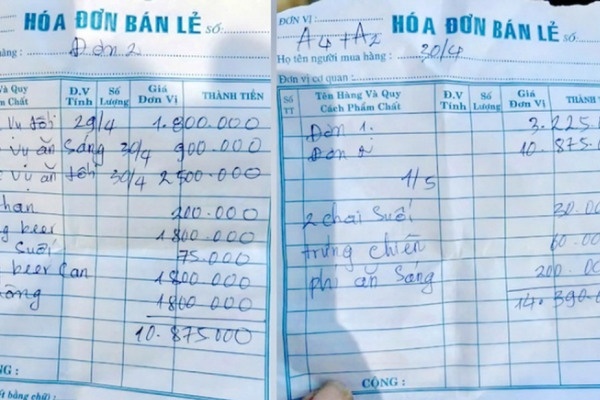 HÓA ĐƠN BÁN LẺ Số:
hàng : Đơn 2
Và Quy
Chất
Đ.V
Tính
Số
Lượng
Giá
Đơn Vị
THÀNH TIỀN
Vụ tối 29/4 1.800.000
Vụ ăn Sáng 30/4 900.000
Vụ ăn tối 30/4 2500.000
200.000
beer 1800.000
Suối 75.000
beer Can 1800.000
1800 000
10.875.000
NG :
bằng chữ) :
ĐƠN VỊ :
A4+A2
HÓA ĐƠN BÁN LẺ Số:
Họ tên người mua hàng : 30/4
Đơn vị cơ quan :
Số
TT
Tên Hàng Và Quy
Cách Phẩm Chất
Đ.V
Tính
Số
Lượng
Giá
Đơn Vị
THÀNH
Đơn 1: 3.225
Đơn 2 10.875
1/5
2 chai Suối 30.00
trứng chiên 60.00
phí ăn Sáng 200.00
14.390.00
CỘNG :